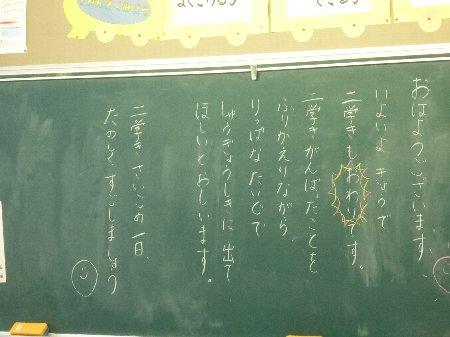 おはようございます。
いよいよ きょうで
二学きもおわりです。
二学きがんばったことを
ふりかえりながら
りっぱなたいどで
しゅうぎょうしきに 出て
ほしいとおもいます。
二学きさいごの一日、
たのしくすごしましょう